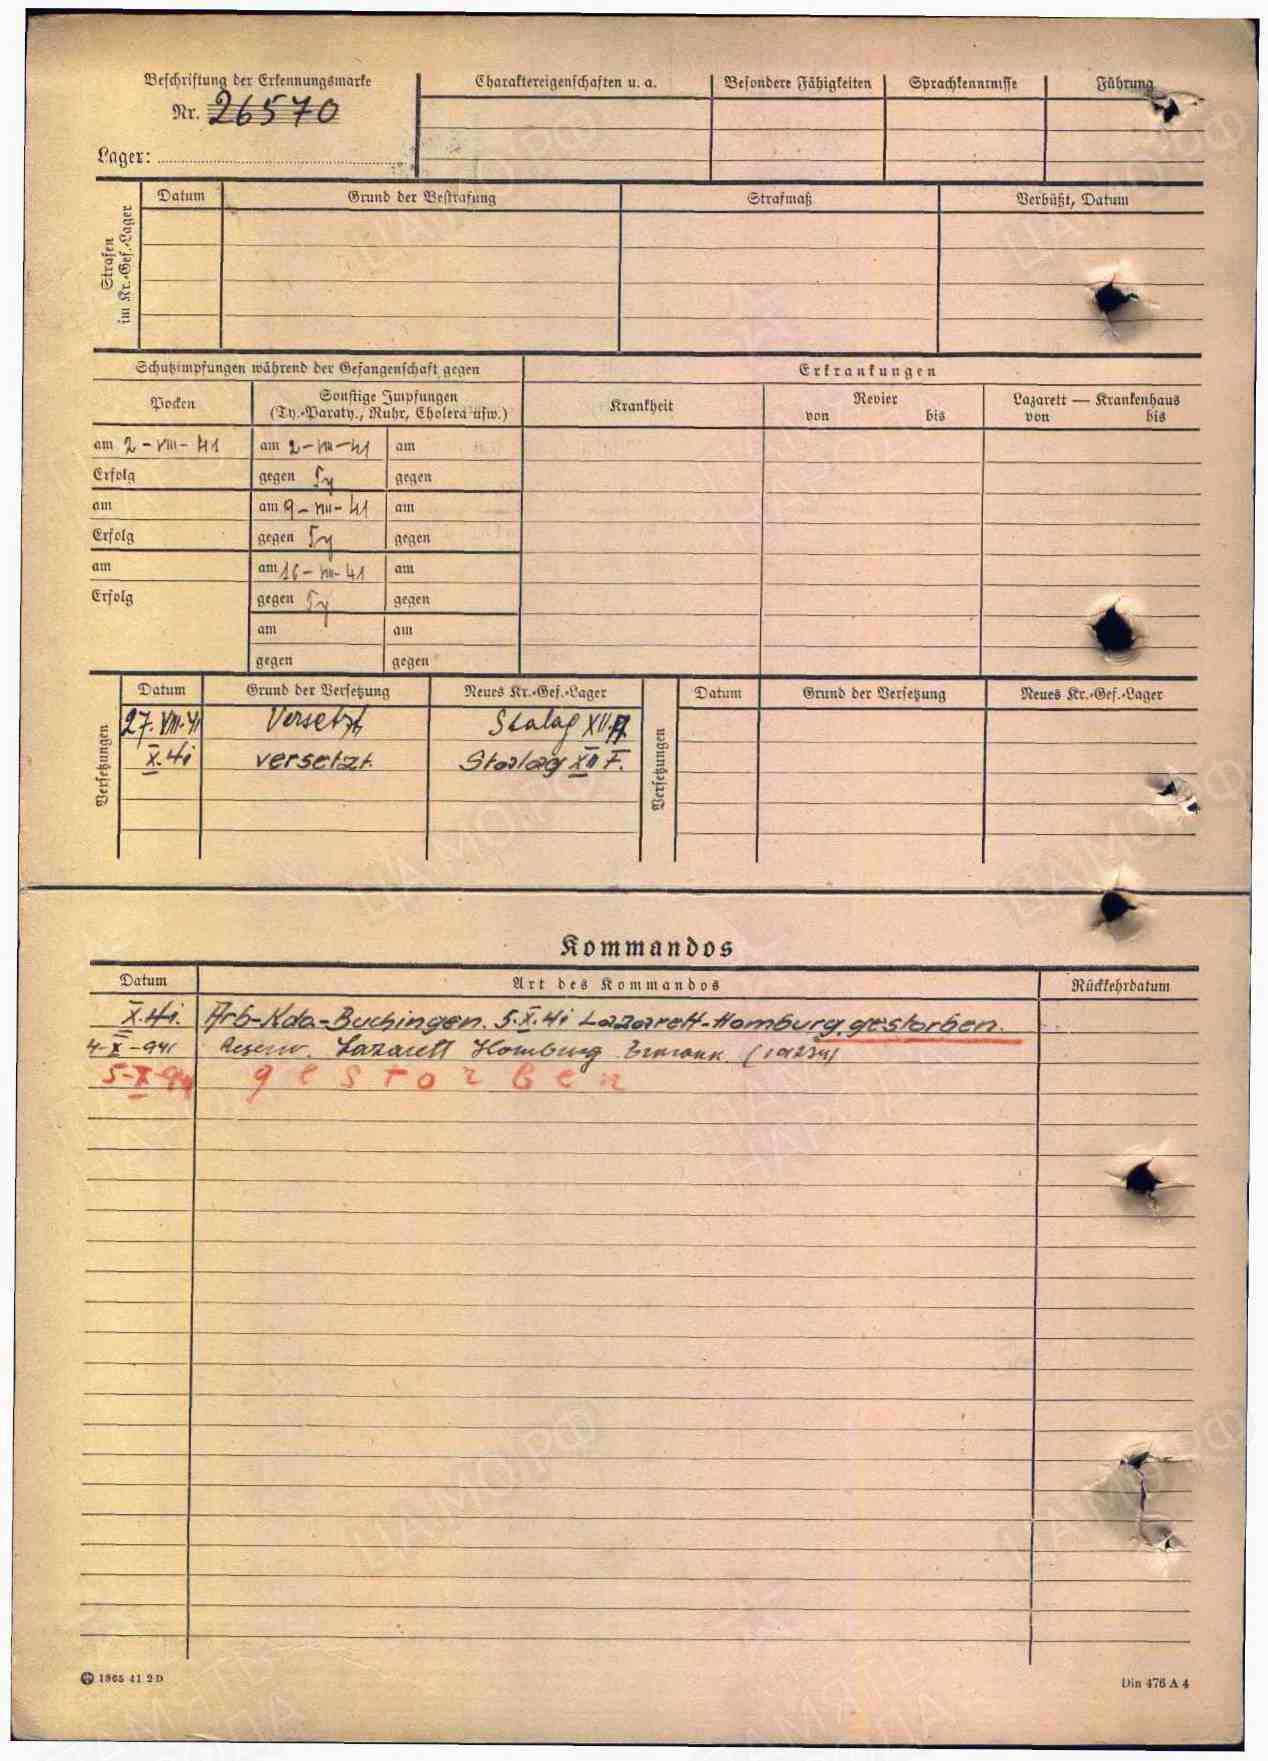 Beschriftung der Erkennungsmarke
Nr. 26570
Lager:
Charaktereigenschaften u. a.
Besondere Fähigkeiten
Sprachkenntnisse
Führung
Strafen im Kr.-Gef.-Lager
Datum
Grund der Bestrafung
Strafmaß
Verbüßt, Datum
Schutzimpfungen während der Gefangenschaft gegen
Erkrankungen
Pocken
Sonstige Impfungen
(Ty.-Paraty., Ruhr, Cholera usw.)
Krankheit
Revier
von bis
Lazarett — Krankenhaus
von bis
am 2-VIII-41 am 2-VIII-41 am
Erfolg gegen Ty gegen
am am 9-VIII-41 am
Erfolg gegen Ty gegen
am am 16-VIII-41 am
Erfolg gegen Ty gegen
am am
gegen gegen
Versetzungen
Datum Grund der Versetzung Neues Kr.-Gef.-Lager
27.VIII.41 Versetzt Stalag XII.
X.41 versetzt. Stalag XII F.
Versetzungen
Datum Grund der Versetzung Neues Kr.-Gef.-Lager
Kommandos
Datum Art des Kommandos Rückkehrdatum
X.41. Arb-Kdo.-Buchingen. 5.X.41 Lazarett-Homburg gestorben.
4-X-941 Reserv. Lazarett Homburg
5-X-941 gestorben
1865 41 2 D
Din 476 A 4